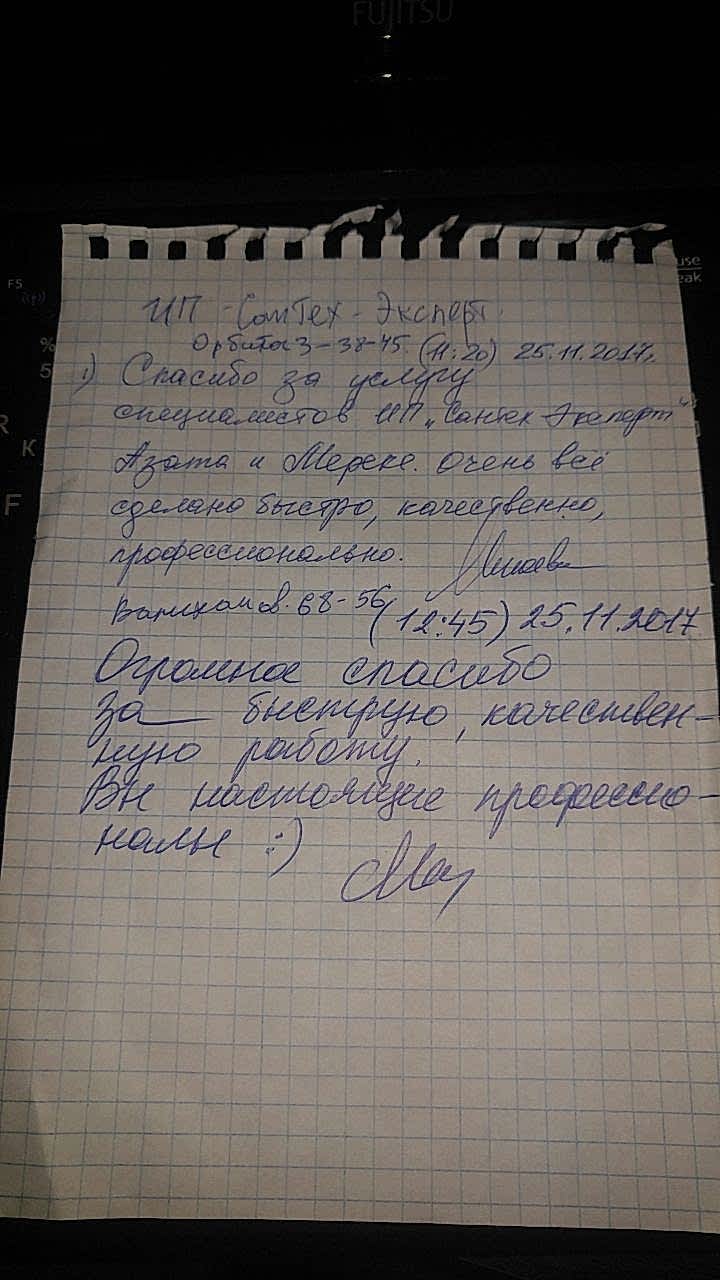 FUJITSU
F5
%
5
R
K
F
use
eak
ИП - СанТех - Эксперт.
Орбита 3-38-45. (11:20) 25.11.2017г.
1) Спасибо за услугу
специалистов ИП „Сантех Эксперт"
Азата и Мереке. Очень всё
сделано быстро, качественно,
профессионально.
68-56 (12:45) 25.11.2017
Огромное спасибо
за быструю, качествен-
ную работу.
Вы настоящие профессио-
налы :)